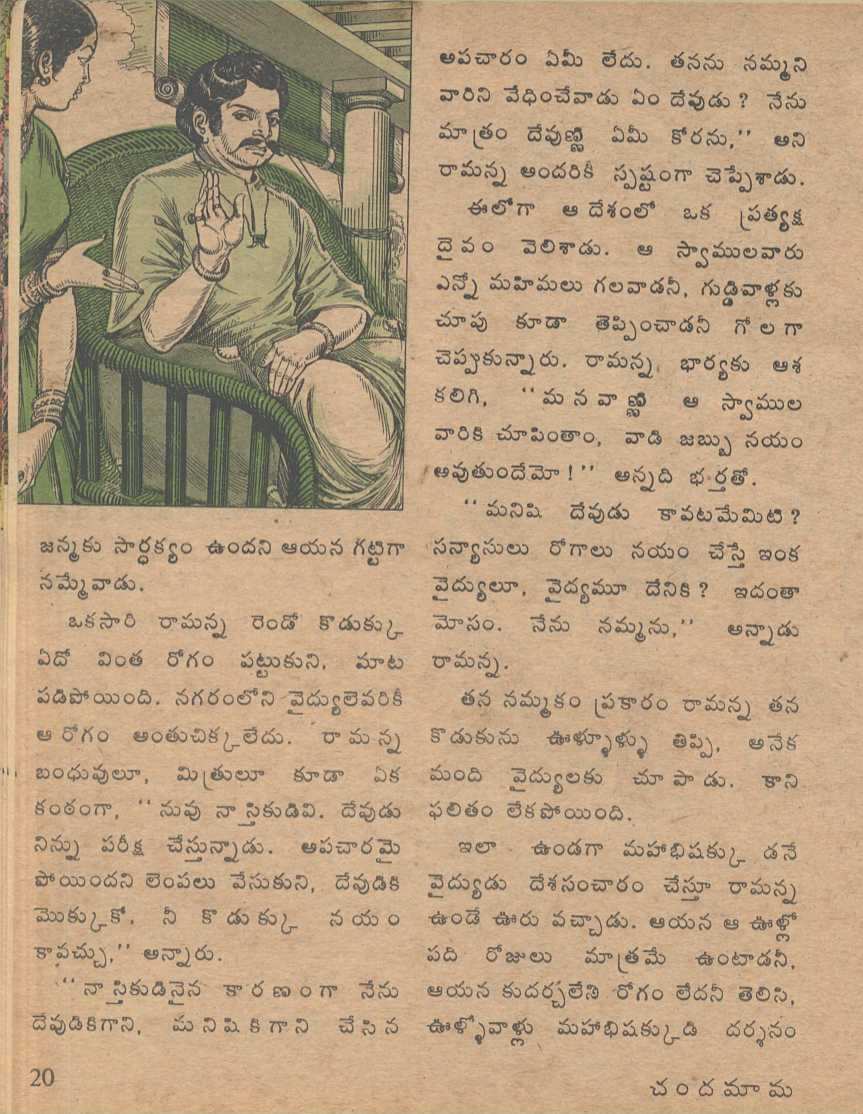 జన్మకు సార్థక్యం ఉందని ఆయన గట్టిగా
నమ్మేవాడు.
ఒకసారి రామన్న రెండో కొడుక్కు
ఏదో వింత రోగం పట్టుకుని, మాట
పడిపోయింది. నగరంలోని వైద్యులెవరికీ
ఆ రోగం అంతుచిక్కలేదు. రామన్న
బంధువులూ, మిత్రులూ కూడా ఏక
కంఠంగా, ‘‘నువు నాస్తికుడివి. దేవుడు
నిన్ను పరీక్ష చేస్తున్నాడు. అపచారమై
పోయిందని లెంపలు వేసుకుని, దేవుడికి
మొక్కుకో. నీ కొడుక్కు నయం
కావచ్చు,’’ అన్నారు.
‘‘నాస్తికుడినైన కారణంగా నేను
దేవుడికిగాని, మనిషికిగాని చేసిన
అపచారం ఏమీ లేదు. తనను నమ్మని
వారిని వేధించేవాడు ఏం దేవుడు? నేను
మాత్రం దేవుణ్ణి ఏమీ కోరను,’’ అని
రామన్న అందరికీ స్పష్టంగా చెప్పేశాడు.
ఈలోగా ఆ దేశంలో ఒక ప్రత్యక్ష
దైవం వెలిశాడు. ఆ స్వాములవారు
ఎన్నో మహిమలు గలవాడనీ, గుడ్డివాళ్లకు
చూపు కూడా తెప్పించాడనీ గోలగా
చెప్పుకున్నారు. రామన్న భార్యకు ఆశ
కలిగి, ‘‘మనవాణ్ణి ఆ స్వాముల
వారికి చూపింతాం, వాడి జబ్బు నయం
అవుతుందేమో!’’ అన్నది భర్తతో.
‘‘మనిషి దేవుడు కావటమేమిటి?
సన్యాసులు రోగాలు నయం చేస్తే ఇంక
వైద్యులూ, వైద్యమూ దేనికి? ఇదంతా
మోసం. నేను నమ్మను,’’ అన్నాడు
రామన్న.
తన నమ్మకం ప్రకారం రామన్న తన
కొడుకును ఊళ్ళూళ్ళు తిప్పి, అనేక
మంది వైద్యులకు చూపాడు. కాని
ఫలితం లేకపోయింది.
ఇలా ఉండగా మహాభిషక్కుడనే
వైద్యుడు దేశసంచారం చేస్తూ రామన్న
ఉండే ఊరు వచ్చాడు. ఆయన ఆ ఊళ్లో
పది రోజులు మాత్రమే ఉంటాడనీ,
ఆయన కుదర్చలేని రోగం లేదనీ తెలిసి,
ఊళ్ళోవాళ్లు మహాభిషక్కుడి దర్శనం
20
చందమామ